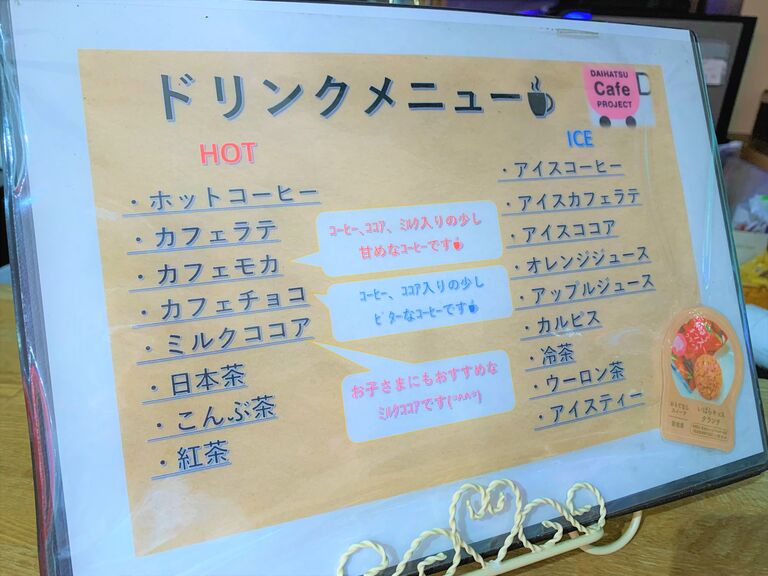 ドリンクメニュー
DAIHATSU
Cafe
PROJECT
HOT
・ホットコーヒー
・カフェラテ
・カフェモカ
・カフェチョコ
・ミルクココア
・日本茶
・こんぶ茶
・紅茶
ｺｰﾋｰ､ｺｺｱ、ﾐﾙｸ入りの少し
甘めなｺｰﾋｰです
ｺｰﾋｰ、ｺｺｱ入りの少し
ﾋﾞﾀｰなｺｰﾋｰです
お子さまにもおすすめな
ﾐﾙｸｺｺｱです(^^^)
ICE
・アイスコーヒー
・アイスカフェラテ
・アイスココア
・オレンジジュース
・アップルジュース
・カルピス
・冷茶
・ウーロン茶
・アイスティー